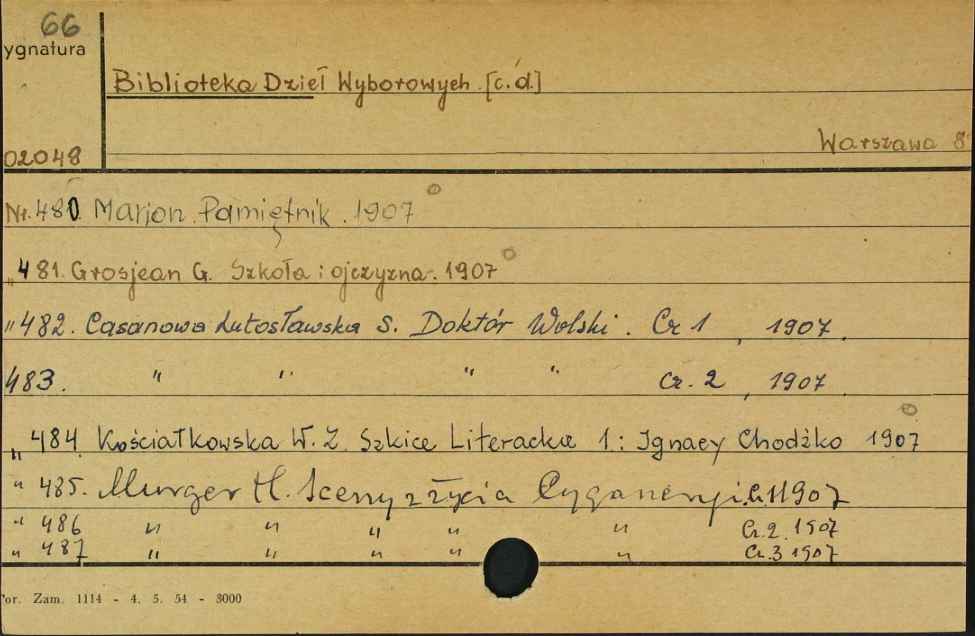 66
ygnatura
Biblioteka Dzieł Wyborowych [c.d.]
Warszawa 8
02048
Nr. 480 Marion Pamiętnik. 1907
" 481. Grosjean G. Szkoła i ojczyzna. 1907
" 482. Casanowa Lutosławska S. Doktór Wolski. Cz 1, 1907.
483. " " " " Cz. 2, 1907
" 484 Kościałkowska W. Z. Szkice Literackie 1.: Ignacy Chodźko 1907
" 485. Murger H. Sceny z życia Cyganeryi. Cz. 1 1907
" 486 " " " " " Cz. 2. 1907
" 487 " " " " " Cz. 3 1907
or. Zam. 1114 - 4. 5. 54 - 3000